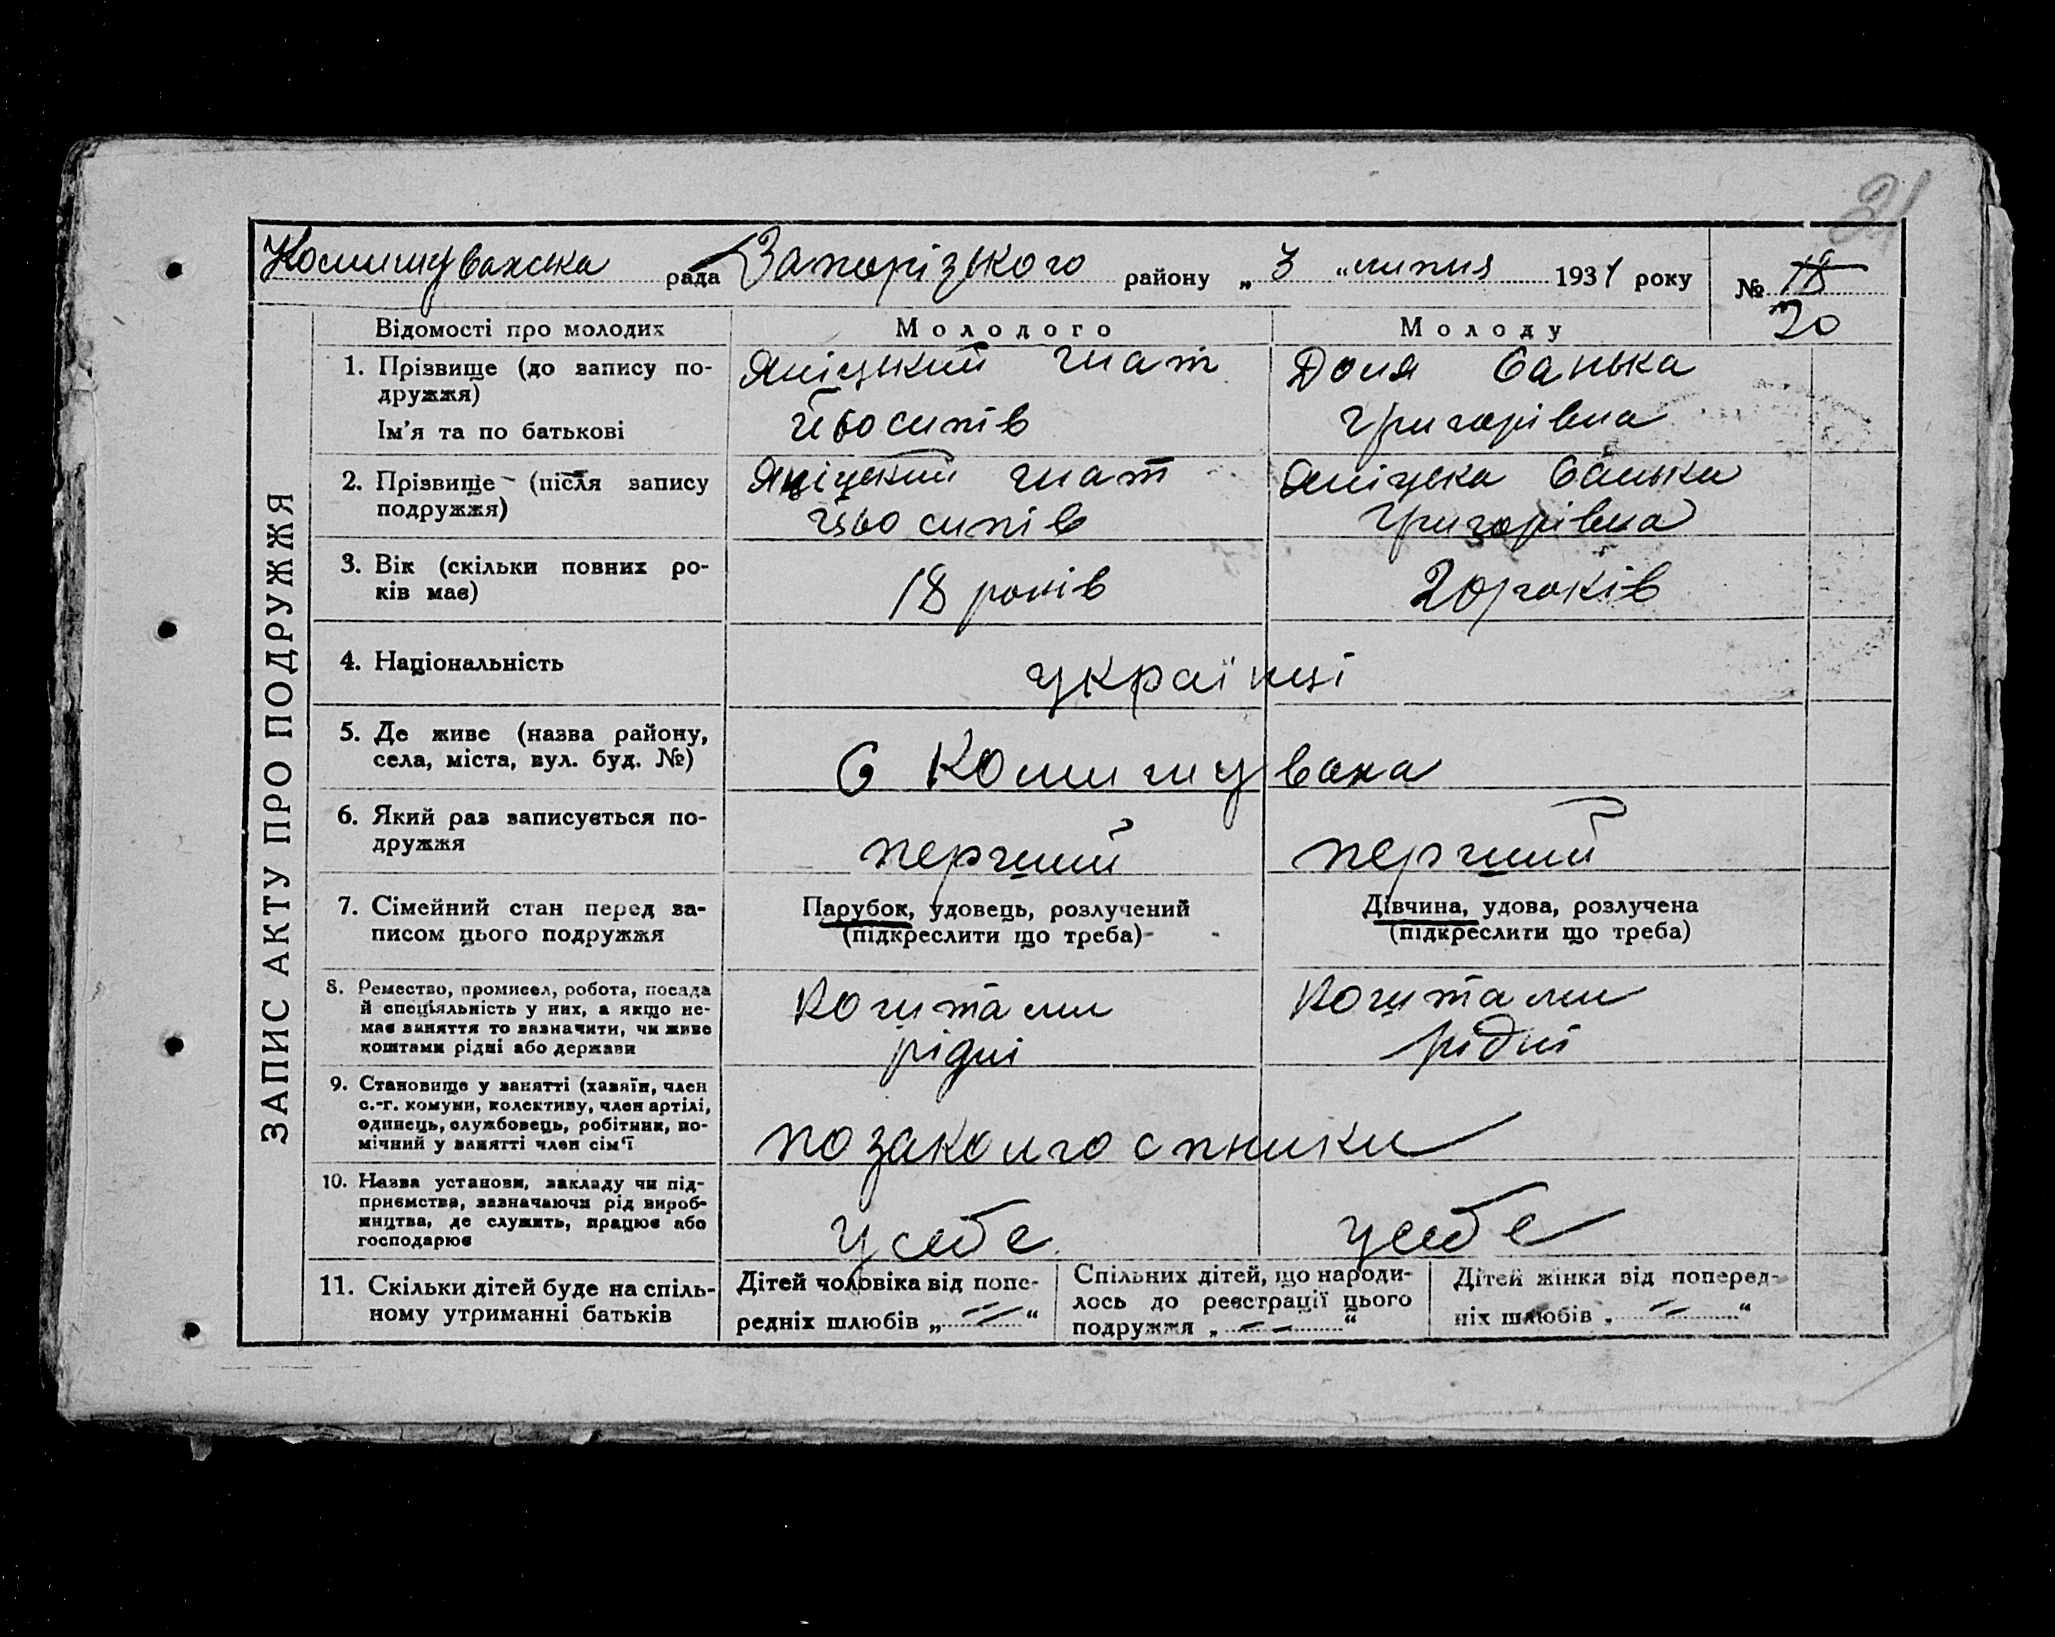 21
Комишуваська рада Запорізького району „ 3 “ липня 1931 року № 18
20
ЗАПИС АКТУ ПРО ПОДРУЖЖЯ
Відомості про молодих Молодого Молоду
1. Прізвище (до запису по- Яніцький гнат Доля Ганька
дружжя) Йьосипів григорівна
Ім'я та по батькові
2. Прізвище (після запису Яніцький гнат Яніцька Ганька
подружжя) Йьосипів григорівна
3. Вік (скільки повних ро- 18 років 20 років
ків має)
4. Національність українці
5. Де живе (назва району, С Комишуваха
села, міста, вул. буд. №)
6. Який раз записується по- перший перший
дружжя
7. Сімейний стан перед за- Парубок, удовець, розлучений Дівчина, удова, розлучена
писом цього подружжя (підкреслити що треба) (підкреслити що треба)
8. Ремество, промисел, робота, посада Коштами Коштами
й спеціяльність у них, а якщо не- рідні рідні
має заняття то зазначити, чи живе
коштами рідні або держави
9. Становище у занятті (хазяїн, член
с.-г. комуни, колективу, член артілі,
одинець, службовець, робітник, по- позаколгоспники
мічний у занятті член сім'ї
10. Назва установи, закладу чи під-
приємства, зазначаючи рід вироб-
ництва, де служить, працює або усебе усебе
господарює
11. Скільки дітей буде на спіль- Дітей чоловіка від попе- Спільних дітей, що народи- Дітей жінки від поперед-
ному утриманні батьків редніх шлюбів „ — “ лось до реєстрації цього ніх шлюбів „ — “
подружжя „ — “